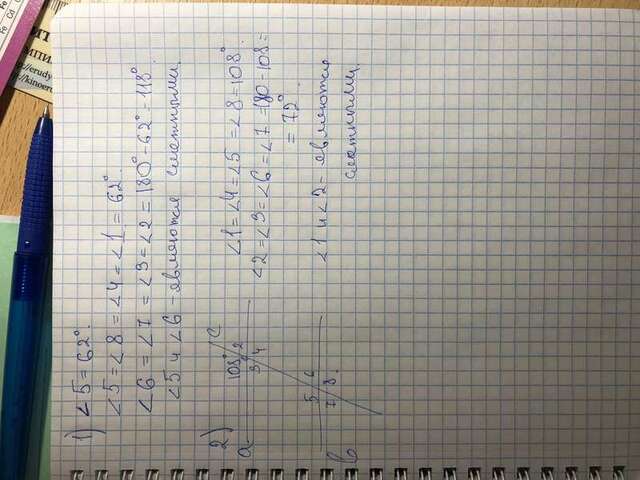 1) ∠5 = 62°.
∠5 = ∠8 = ∠4 = ∠1 = 62°.
∠6 = ∠7 = ∠3 = ∠2 = 180° - 62° = 118°.
∠5 и ∠6 - являются смежными.
2)
c
108° 2
a
3 4
5 6
7 8
b
∠1 = ∠4 = ∠5 = ∠8 = 108°.
∠2 = ∠3 = ∠6 = ∠7 = 180 - 108 =
= 72°.
∠1 и ∠2 - являются
смежными.